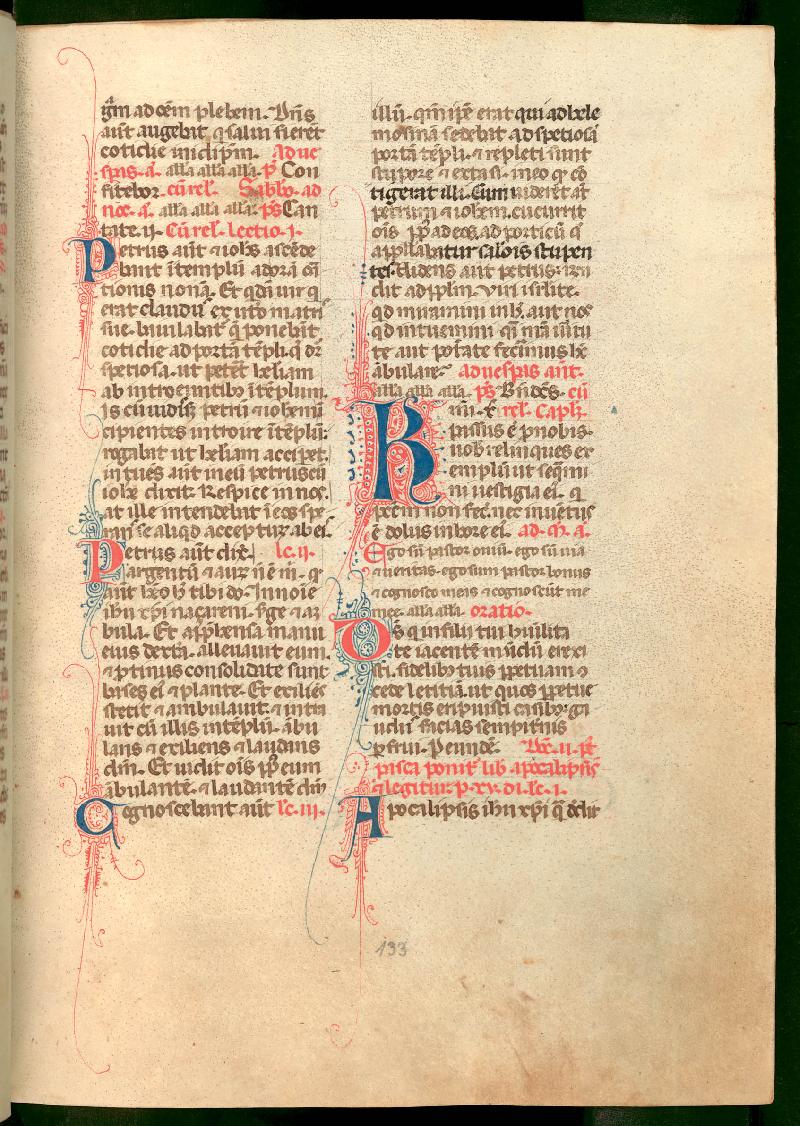 gr̄am ad oēm plebem. Dn̄s
aut̄ augebat q̇ salui fierēt
cotidie in idip̄m. Ad ues
p̄as. a. alla alla alla. p̄ Con
fitebor. cū rel. Sabb̄o. ad
noc̄. a. alla alla alla. p̄s Can
tate. ij. Cū rel. Lectio. j.
Petrus aūt ⁊ iohēs ascēde
bant ī templū adorā oīͦ
tionis nonā. Et qdā uir q̇
erat claudus ex utō matrͥ
sue. baiulabatͬ q̄ ponebāt
cotidie ad portā tēpli. q̄ dr̄
speciosa. ut petēt helīam
ab introeuntibꝫ ī tēplum.
Is cū uidiss̄ petrū ⁊ iohēm ī
cipientes introire ī tēplū:
rogabat ut helīam accip̄et.
intuēs aūt ī eū petrus cū
iohē dixit. Respice in nos.
at ille intendebat ī eos spe
rans se aliqͥd accepturꝫ ab eis.
Petrus aut̄ dix̄. lc. ij.
argentū ⁊ aurꝫ nō ē m̄. q̄
aut̄ hēo h̄ tibi do. In noīe
ihū xp̄i naçareni. surge ⁊ am
bula. Et app̄hensa manu
eius dext̄a. alleuauit eum.
⁊ p̄tinus consolidate sunt
bases eī ⁊ plante. Et exiliēs
stetit ⁊ ambulauit. ⁊ intra
uit cū illis in tēplū. ābu
lans ⁊ exiliens ⁊ laudans
dm̄. Et uidit oīs pp̄s eum
ābulantē. ⁊ laudantē dm̄
Cognoscebant aūt lc. iij.
illū. qm̄ ip̄e erat qui ad hele
mosinā sedebat ad spetiosā
portā tēpli. ⁊ repleti sunt
stupore ⁊ extasi. in eo qd̄ cō
tigerat illi. Cum uiderēt aūt
petrum ⁊ iohem. cucurrit
oīs pp̄s ad eos. ad porticū q̄
appllabatur salōis stupen
tes. Uidens aut petrus: rn̄
dit ad plēm. Viri isrlite.
qd miramini in h̄. aut nos
qd intuemini q̇i nr̄a uirtu
te aut potāte fecimus hc̄
ābulare. ad uesp̄as ant̄.
alla alla alla. p̄s Bn̄ dcs̄. cū
rel. Capl̄.
mi. X
passus ē p nobis.
uob̄ relinqͥes ex
emplū ut seqͣmi
ni uestigia eī. q̇
peccm̄ non fec̄. nec inuētus
ē dolus in ore eī. ad. m̄. a.
Ego sū pastor ouiū. ego sū uia
⁊ ueritas. ego sum pastor bonus
⁊ cognosco meas ⁊ cognoscūt me
mee. alla alla. oratio.
Ds̄ qui in filii tui hūilita
te iacentē mūdū erexi
sti. fidelibꝫ tuis ppetuam ↄ
cede letitiā. ut quos ppetue
mortis eripuisti casibꝫ: ga
udiis facias sempiternis
p̄frui. P eundē. Dc̄. ij. pt̄
pasca ponitͬ lib apocalipsis
⁊ legitur p. xv. di. lc. j.
Apocalipsis ihū xp̄i q̄ dedit
133